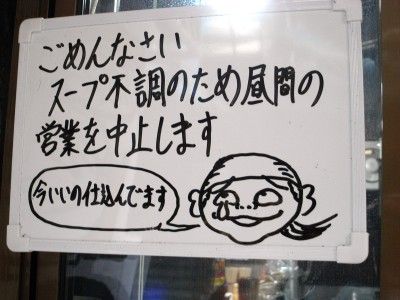 ごめんなさい
スープ不調のため昼間の
営業を中止します
今いいの仕込んでます